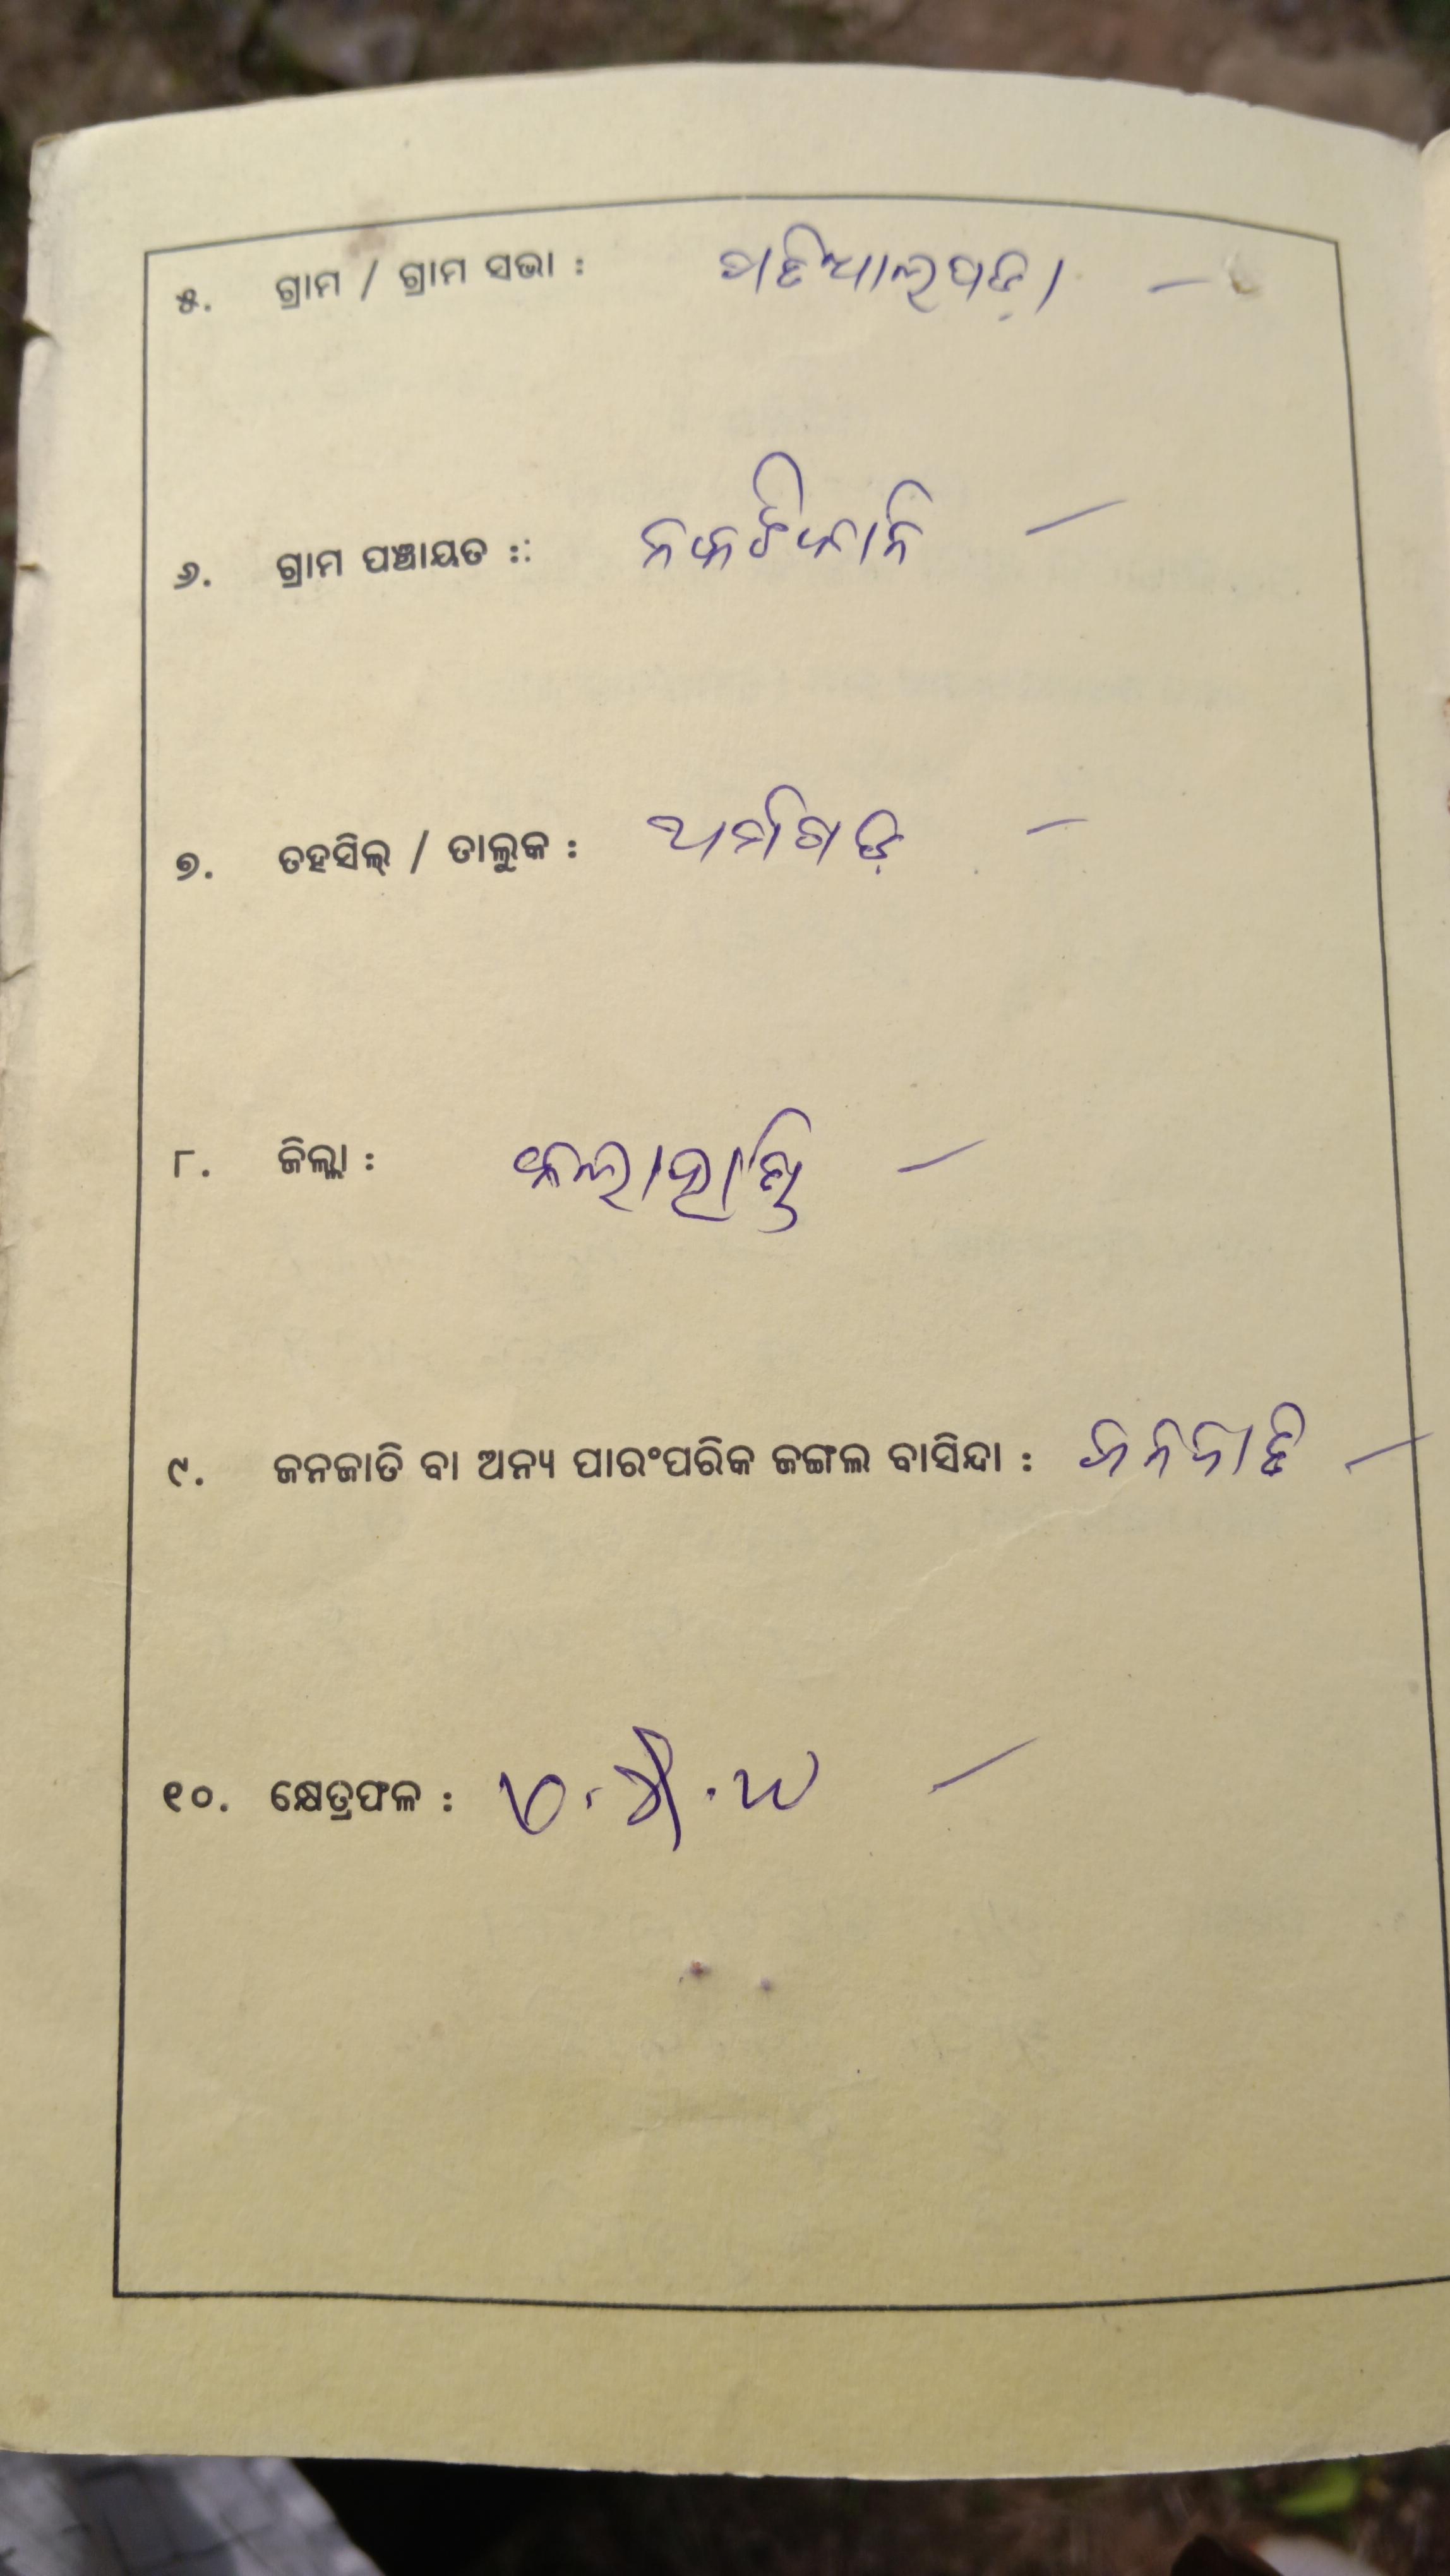 ୫. ଗ୍ରାମ / ଗ୍ରାମ ସଭା :
୬. ଗ୍ରାମ ପଞ୍ଚାୟତ :: ନକ୍ତିକାନି
୭. ତହସିଲ୍ / ତାଲୁକ : ଥର୍ମଗଡ଼
୮. ଜିଲ୍ଲା : କଲାହାଣ୍ଡି
୯. ଜନଜାତି ବା ଅନ୍ୟ ପାରଂପରିକ ଜଙ୍ଗଲ ବାସିନ୍ଦା : ଜନଜାତି
୧୦. କ୍ଷେତ୍ରଫଳ :